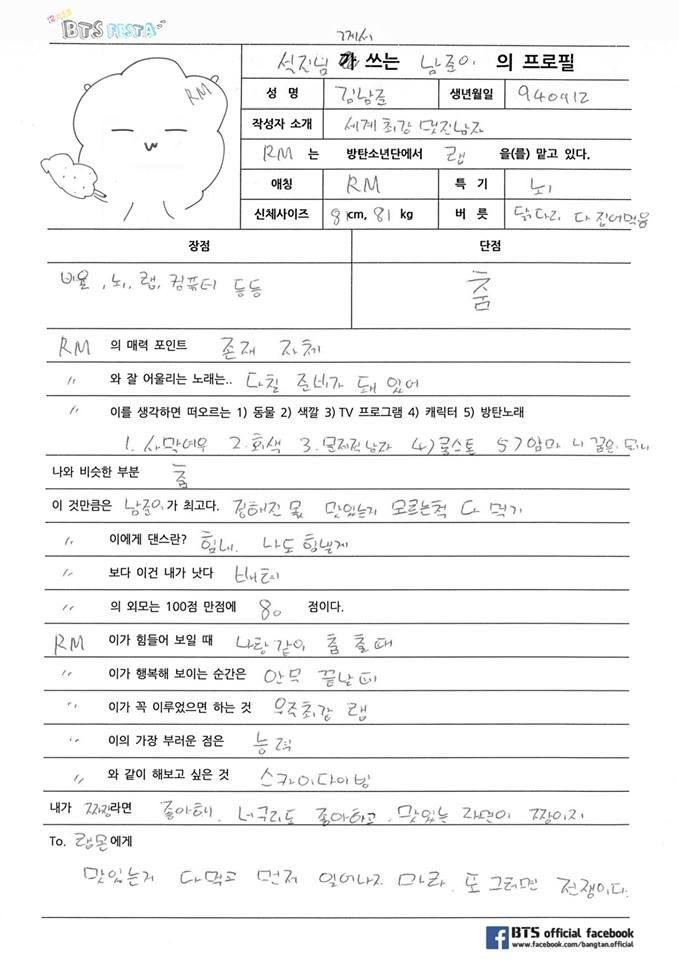 BTS FESTA
그께서
석진님 쓰는 남준이 의 프로필
RM
성 명 김남준 생년월일 940912
작성자 소개 세계 최강 멋진남자
RM 는 방탄소년단에서 랩 을(를) 맡고 있다.
애칭 RM 특 기 뇌
신체사이즈 81cm, 81 kg 버 릇 닭다리 다 집어먹음
장점 단점
비율, 뇌, 랩, 컴퓨터 등등 춤
RM 의 매력 포인트 존재 자체
〃 와 잘 어울리는 노래는.. 다칠 준비가 돼 있어
〃 이를 생각하면 떠오르는 1) 동물 2) 색깔 3) TV 프로그램 4) 캐릭터 5) 방탄노래
1. 사막여우 2. 회색 3. 문제적남자 4) 5) 얌마 니 꿈은 뭐니
나와 비슷한 부분 춤
이 것만큼은 남준이가 최고다. 정해진 몫 맛있는지 모르는척 다 먹기
〃 이에게 댄스란? 힘내. 나도 힘낼게
〃 보다 이건 내가 낫다
〃 의 외모는 100점 만점에 80 점이다.
RM 이가 힘들어 보일 때 나랑 같이 춤 출 때
〃 이가 행복해 보이는 순간은 안무 끝날 때
〃 이가 꼭 이루었으면 하는 것 우주최강 랩
〃 이의 가장 부러운 점은 능력
〃 와 같이 해보고 싶은 것 스카이다이빙
내가 짜장라면 좋아해. 너구리도 좋아하고. 맛있는 라면이 짱이지
To. 랩몬에게
맛있는거 다먹고 먼저 일어나지 마라. 또 그러면 전쟁이다.
BTS official facebook
www.facebook.com/bangtan.official